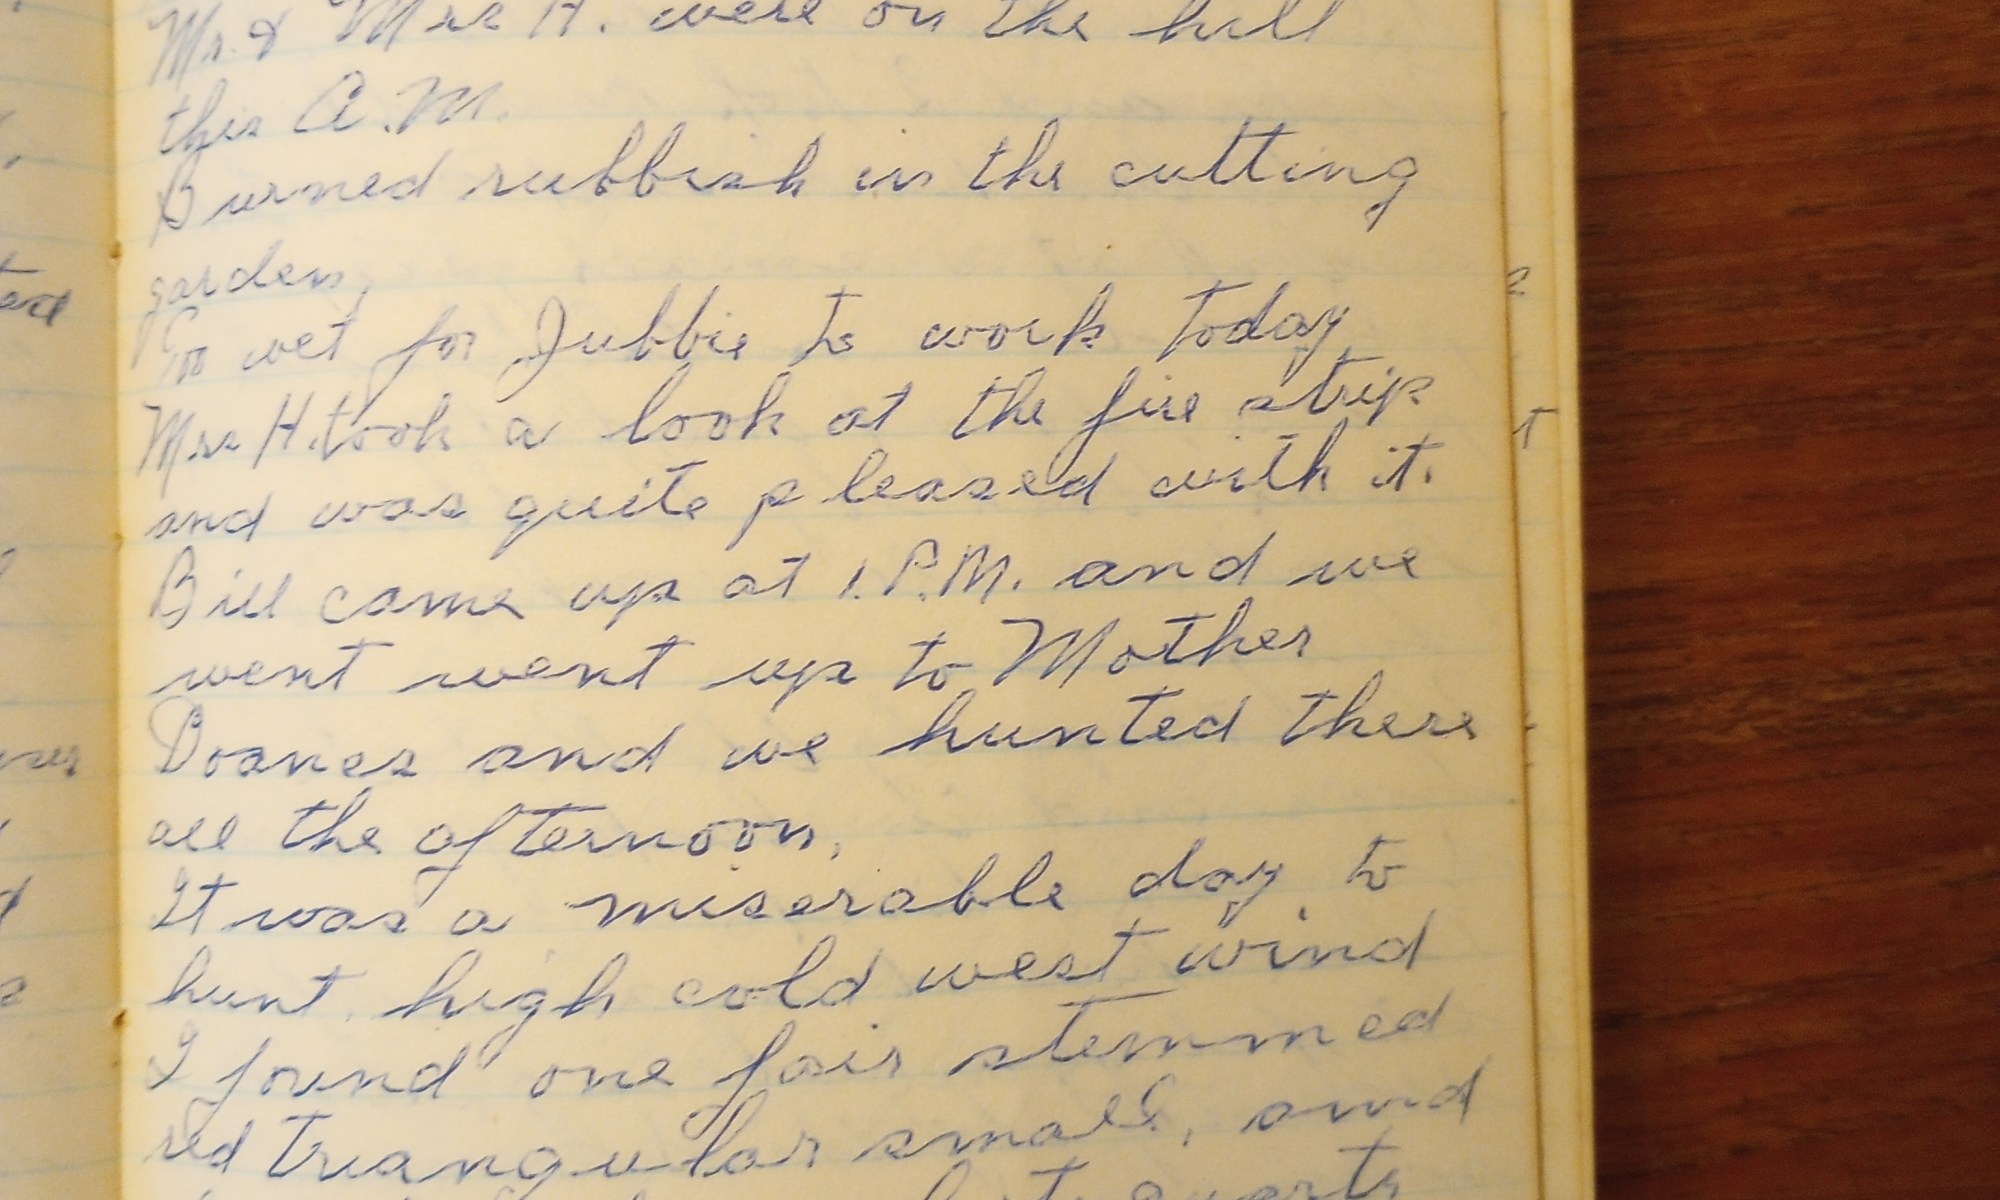 Mr. & Mrs H. were on the hill
this A.M.
Burned rubbish in the cutting
garden,
Too wet for Jubbie to work today,
Mrs H. took a look at the fire strip
and was quite pleased with it.
Bill came up at 1. P.M. and we
went went up to Mother
Doanes and we hunted there
all the afternoon,
It was a miserable day, to
hunt, high cold west wind
I found one fair stemmed
red triangular small, and
quarts